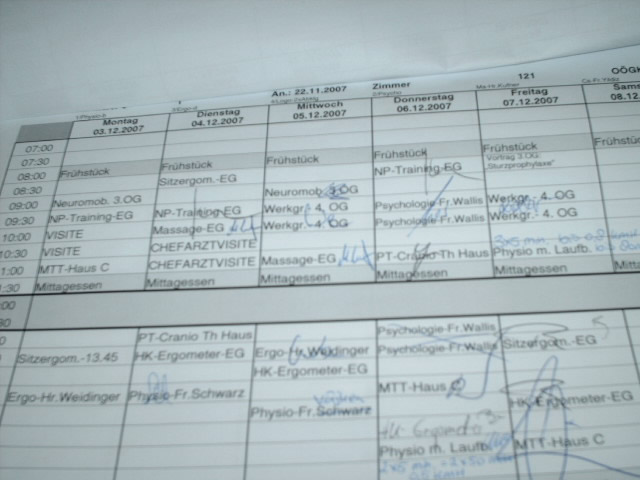 An.: 22.11.2007 Zimmer 121 OÖGK
Montag Dienstag Mittwoch Donnerstag Freitag
03.12.2007 04.12.2007 05.12.2007 06.12.2007 07.12.2007 08.12
07:00
07:30
08:00 Frühstück Frühstück Frühstück Frühstück Frühstück Frühstü
Vortrag 3.OG:
"Sturzprophylaxe"
08:30 Sitzergom.-EG NP-Training-EG
09:00 Neuromob. 3.OG Neuromob. 3.OG
09:30 NP-Training-EG NP-Training-EG Werkgr.- 4. OG Psychologie-Fr.Wallis Werkgr.- 4. OG
10:00 VISITE Massage-EG Werkgr.- 4. OG Psychologie-Fr.Wallis Werkgr.- 4. OG
10:30 VISITE CHEFARZTVISITE
1:00 MTT-Haus C CHEFARZTVISITE Massage-EG PT-Cranio Th Haus Physio m. Laufb.
:30 Mittagessen Mittagessen Mittagessen Mittagessen Mittagessen Mitta
:00
PT-Cranio Th Haus Psychologie-Fr.Wallis
Sitzergom.-13.45 HK-Ergometer-EG Ergo-Hr.Weidinger Psychologie-Fr.Wallis Sitzergom.-EG
HK-Ergometer-EG
Ergo-Hr.Weidinger Physio-Fr.Schwarz MTT-Haus HK-Ergometer-EG
Physio-Fr.Schwarz
HK Ergometer
Physio m. Laufb. MTT-Haus C